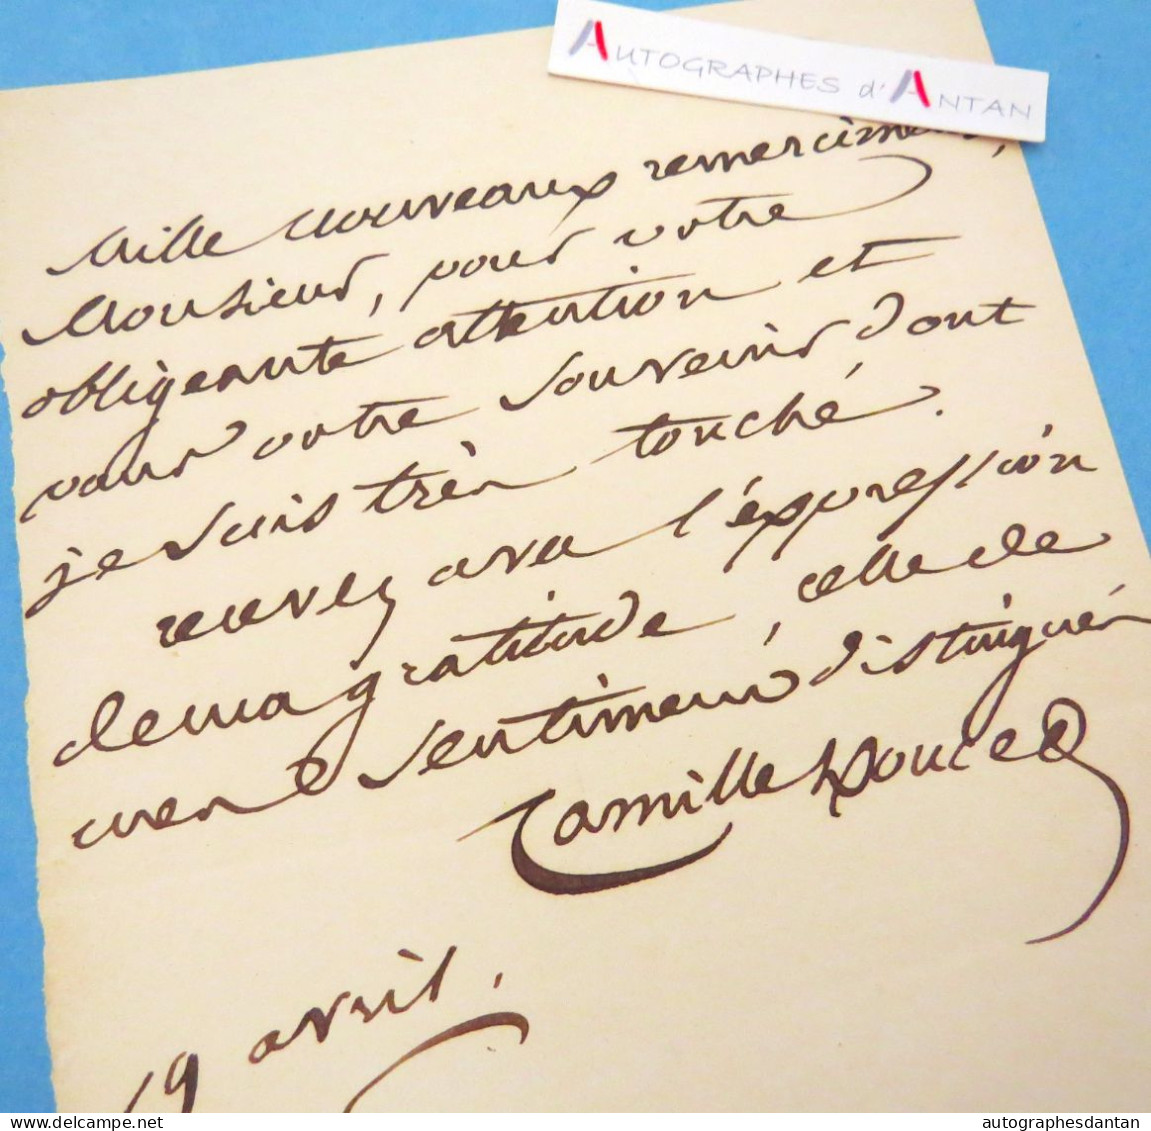 AUTOGRAPHES d'ANTAN
Mille nouveaux remerciments,
Monsieur, pour votre
obligeante attention et
pour votre souvenir dont
je suis très touché.
recevez avec l'expression
de ma gratitude, celle de
mes sentimens distingués
Camille Doucet
19 avril.
delcampe.net
autographesdantan